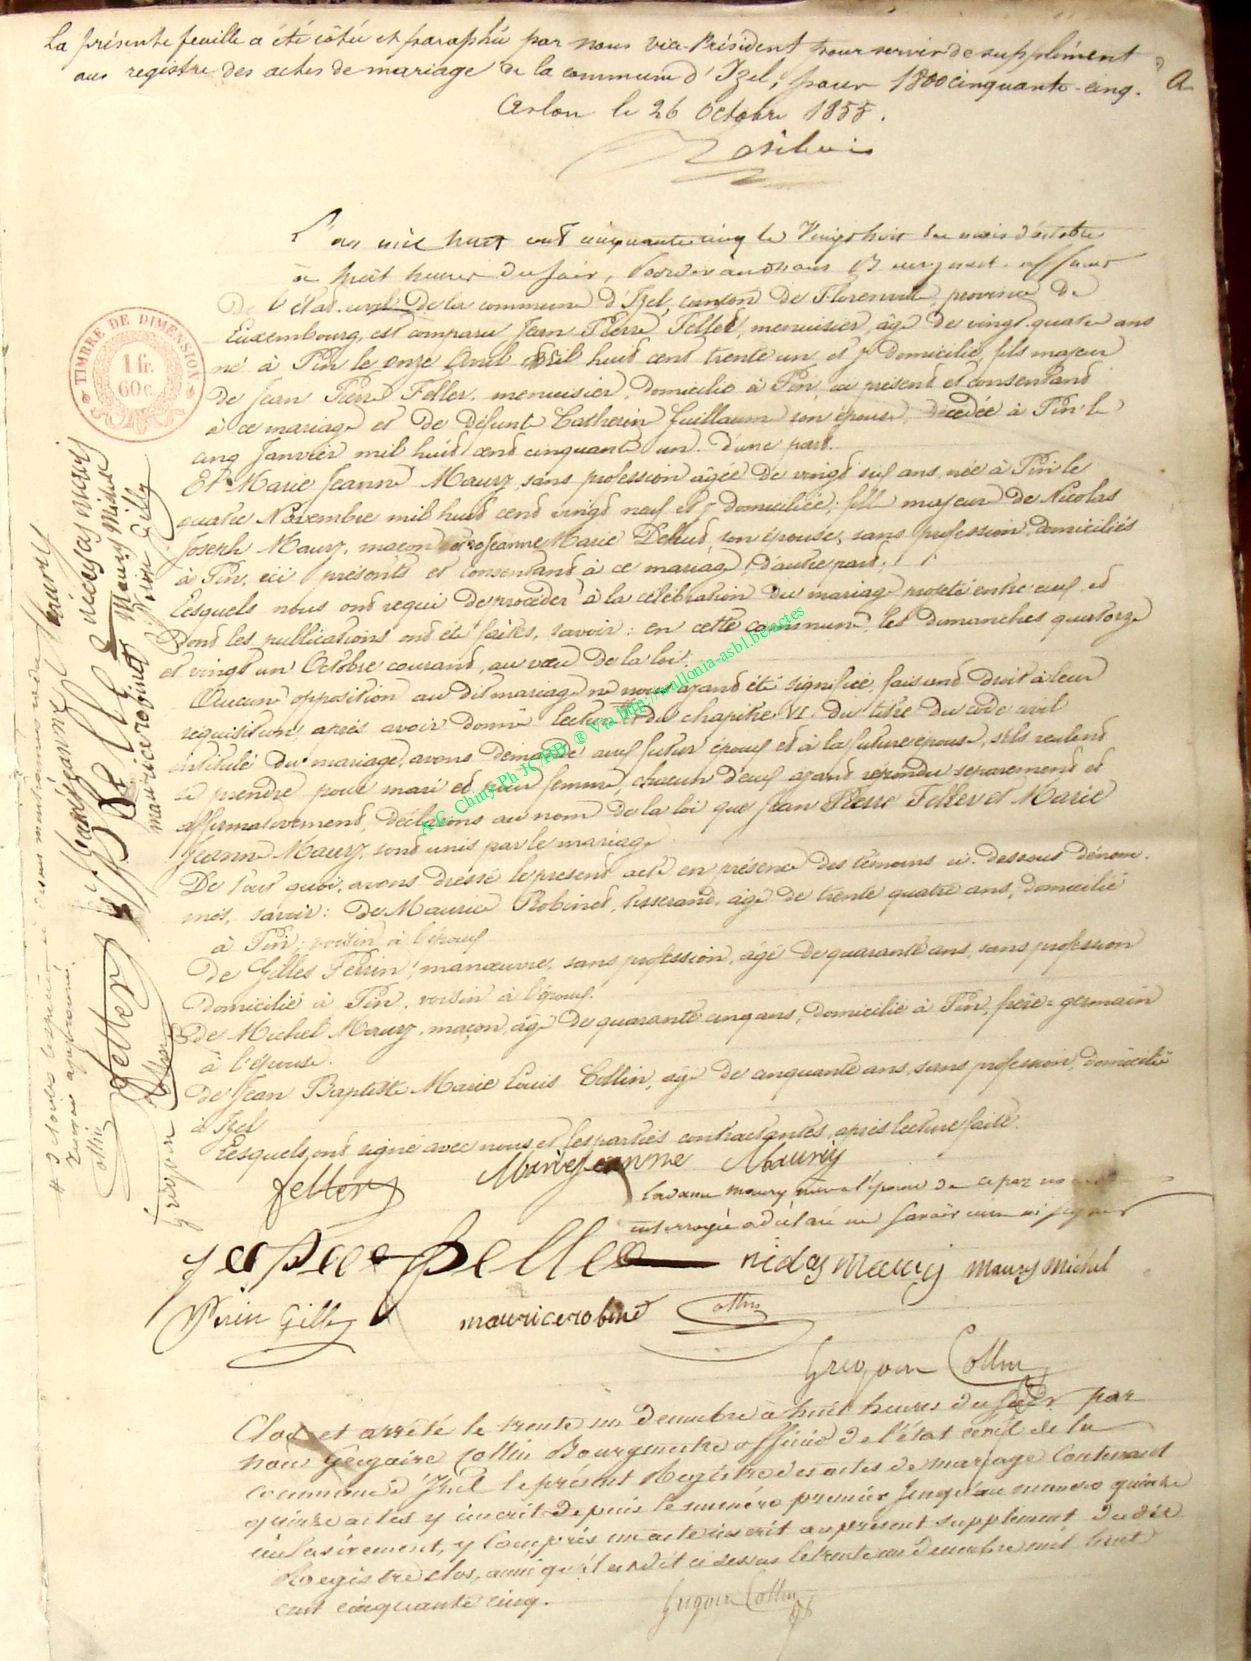 La présente feuille a été côtée et paraphée par nous Vice-Président pour servir de supplément
aux registre des actes de mariage de la commune d'Izel, pour 1800cinquante-cinq. A
Arlon le 26 Octobre 1855.
L'an mil huit cent cinquante cinq le Vingt huit du mois d'octobre
à huit heures du soir, Pardevant nous Bourgmestre officier
De l'état-civil De la commune d'Izel, canton De Florenville, province De
Luxembourg, est comparu Jean Pierre Feller, menuisier, âgé De vingt-quatre ans
né à Pin le onze Avril mil huit cent trente un et y domicilié, fils majeur
De Jean Pierre Feller, menuisier, domicilié à Pin, ici présent et consentant
à ce mariage et De Défunte Catherine Guillaume son épouse, décédée à Pin le
cinq Janvier mil huit cent cinquante un. D'une part.
Et Marie Jeanne Maury, sans profession âgée De vingt six ans, née à Pin le
quatre Novembre mil huit cent vingt neuf et y domiciliée, fille majeure De Nicolas
Joseph Maury, maçon et Jeanne Marie Dehut, son épouse, sans profession, domiciliés
à Pin, ici présents et consentant à ce mariage, d'autre part,
Lesquels nous ont requi De procéder à la célébration Du mariage projeté entre eux et
Dont les publications ont été faites, savoir: en cette commune, les dimanches quatorze
et vingt un Octobre courant, au vœu De la loi.
Aucune opposition au dit mariage ne nous ayant été signifiée, faisant droit à leur
requisition, après avoir donné lecture du chapitre VI. Du titre Du code civil
intitulé Du mariage, avons demandé aux futur époux et à la future épouse, s'ils veulent
se prendre pour mari et pour femme, chacun d'eux ayant répondu séparement et
affirmativement, déclarons au nom De la loi que Jean Pierre Feller et Marie
Jeanne Maury, sont unis par le mariage
De tout quoi, avons dressé le présent acte en présence Des témoins ci-dessous dénom-
més, savoir: De Maurice Robinet, tisserand, âgé De trente quatre ans, domicilié
à Pin, voisin à l'époux
De Gilles Perin, manœuvre, sans profession, âgé De quarante ans, sans profession
domicilié à Pin, voisin à l'époux.
De Michel Maury, maçon, âgé De quarante cinq ans, domicilié à Pin, frère-germain
à l'épouse.
De Jean Baptiste Marie Louis Collin, âgé De cinquante ans, sans profession, domicilié
à Izel
Lesquels ont signé avec nous et les parties contractantes, après lecture faite.
feller Marie jeanne Maury
maury
interrogée a déclaré ne savoir ni signer
feller nicolas maury maury Michel
Perin Gille mauricerobinet Collin
Grégoire Collin
Clos et arrêté le trente un décembre à huit heures du soir par
nous Grégoire Collin Bourgmestre officier De l'état civil de la
commune d'Izel le présent Registre des actes de mariage contenant
quinze actes y inscrit depuis le numéro premier jusqu'au numéro quinze
inclusivement, y compris un acte inscrit au présent supplément du dit
Registre clos, ainsi qu'il est dit ci dessus le trente un décembre mil huit
cent cinquante cinq.
Grégoire Collin
TIMBRE DE DIMENSION
1 fr.
60c.
mauricerobinet Perin Gille
nicolas maury
Maury Michel
marie jeanne Maury
feller
Collin
Grégoire Collin
A.C. Chiny Ph JC/HB ® Via http://wallonia-asbl.be/actes